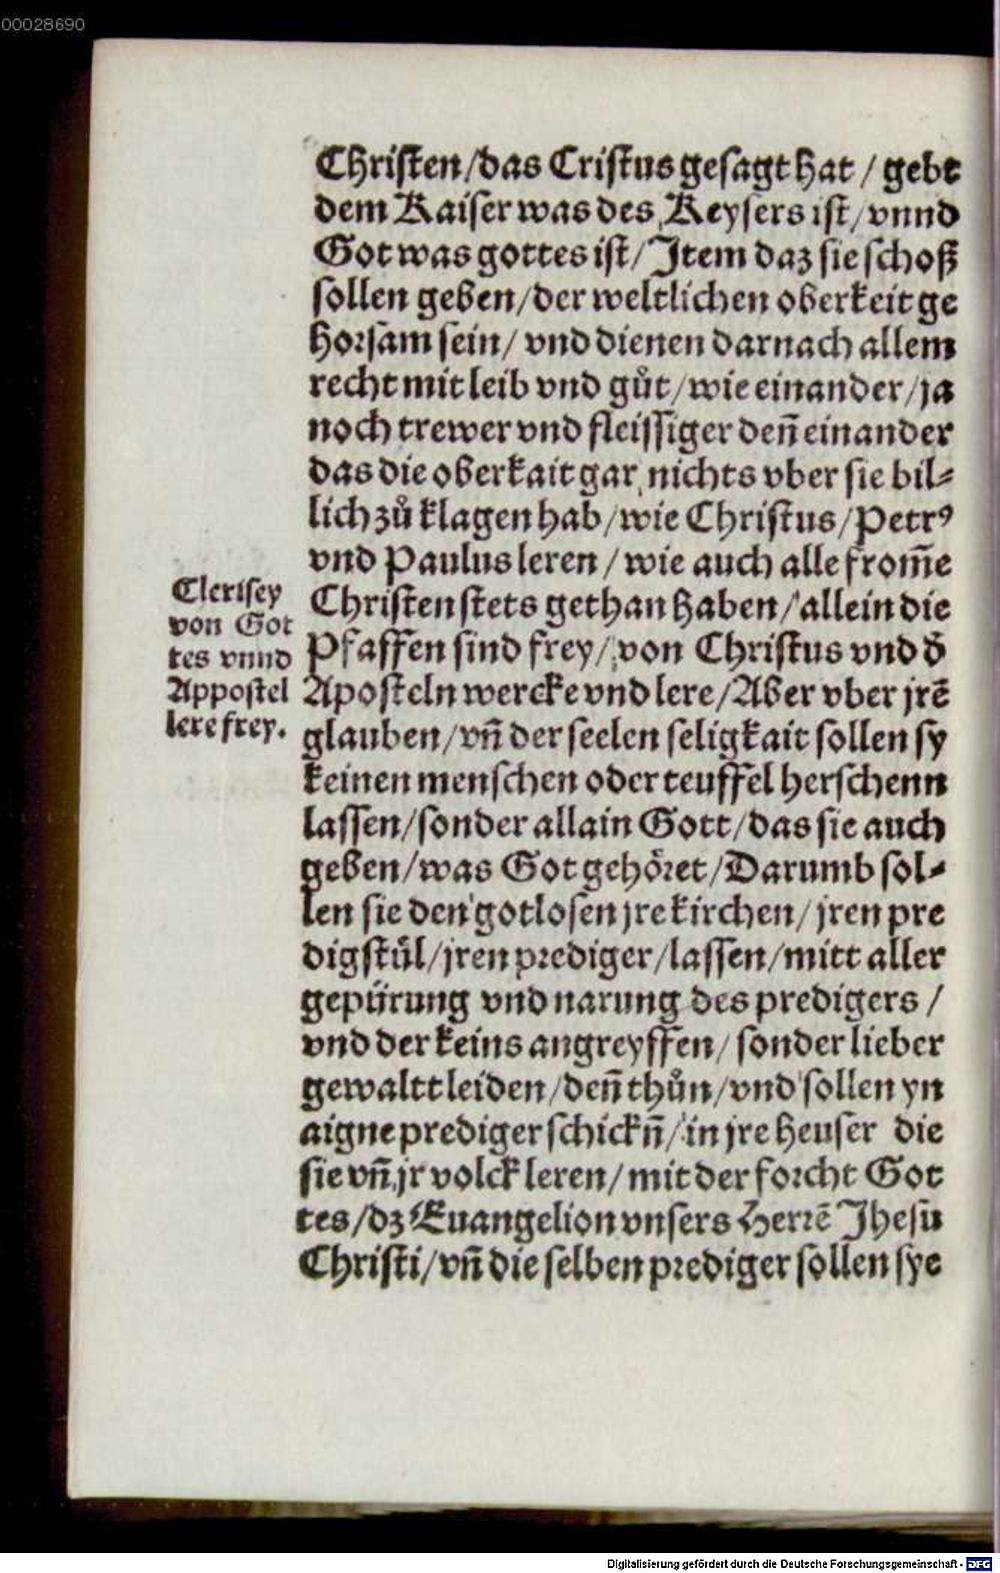 00028690
Christen/das Cristus gesagt hat / gebt
dem Kaiser was des Keysers ist/vnnd
Got was gottes ist/Item daz sie schoß
sollen geben/der weltlichen oberkeit ge
horsam sein/ vnd dienen darnach allem
recht mit leib vnd gůt/wie einander/ja
noch trewer vnd fleissiger deñ einander
das die oberkait gar nichts vber sie bil⸗
lich zů klagen hab/wie Christus/Petrꝰ
vnd Paulus leren / wie auch alle from̃e
Christen stets gethan haben/allein die
Pfaffen sind frey/ von Christus vnd ð
Aposteln wercke vnd lere/Aber vber jrẽ
glauben/vñ der seelen seligkait sollen sy
keinen menschen oder teuffel herschenn
lassen/sonder allain Gott/das sie auch
geben/was Got gehöret/Darumb sol⸗
len sie den gotlosen jre kirchen/jren pre
digstůl/jren prediger/lassen/mitt aller
gepürung vnd narung des predigers /
vnd der keins angreyffen/ sonder lieber
gewaltt leiden/deñ thůn/vnd sollen yn
aigne prediger schickñ/in jre heuser die
sie vñ jr volck leren/mit der forcht Got
tes/dz Euangelion vnsers Herrẽ Jhesu
Christi/vñ die selben prediger sollen sye
Clerisey
von Got
tes vnnd
Appostel
lere frey.
Digitalisierung gefördert durch die Deutsche Forschungsgemeinschaft - DFG